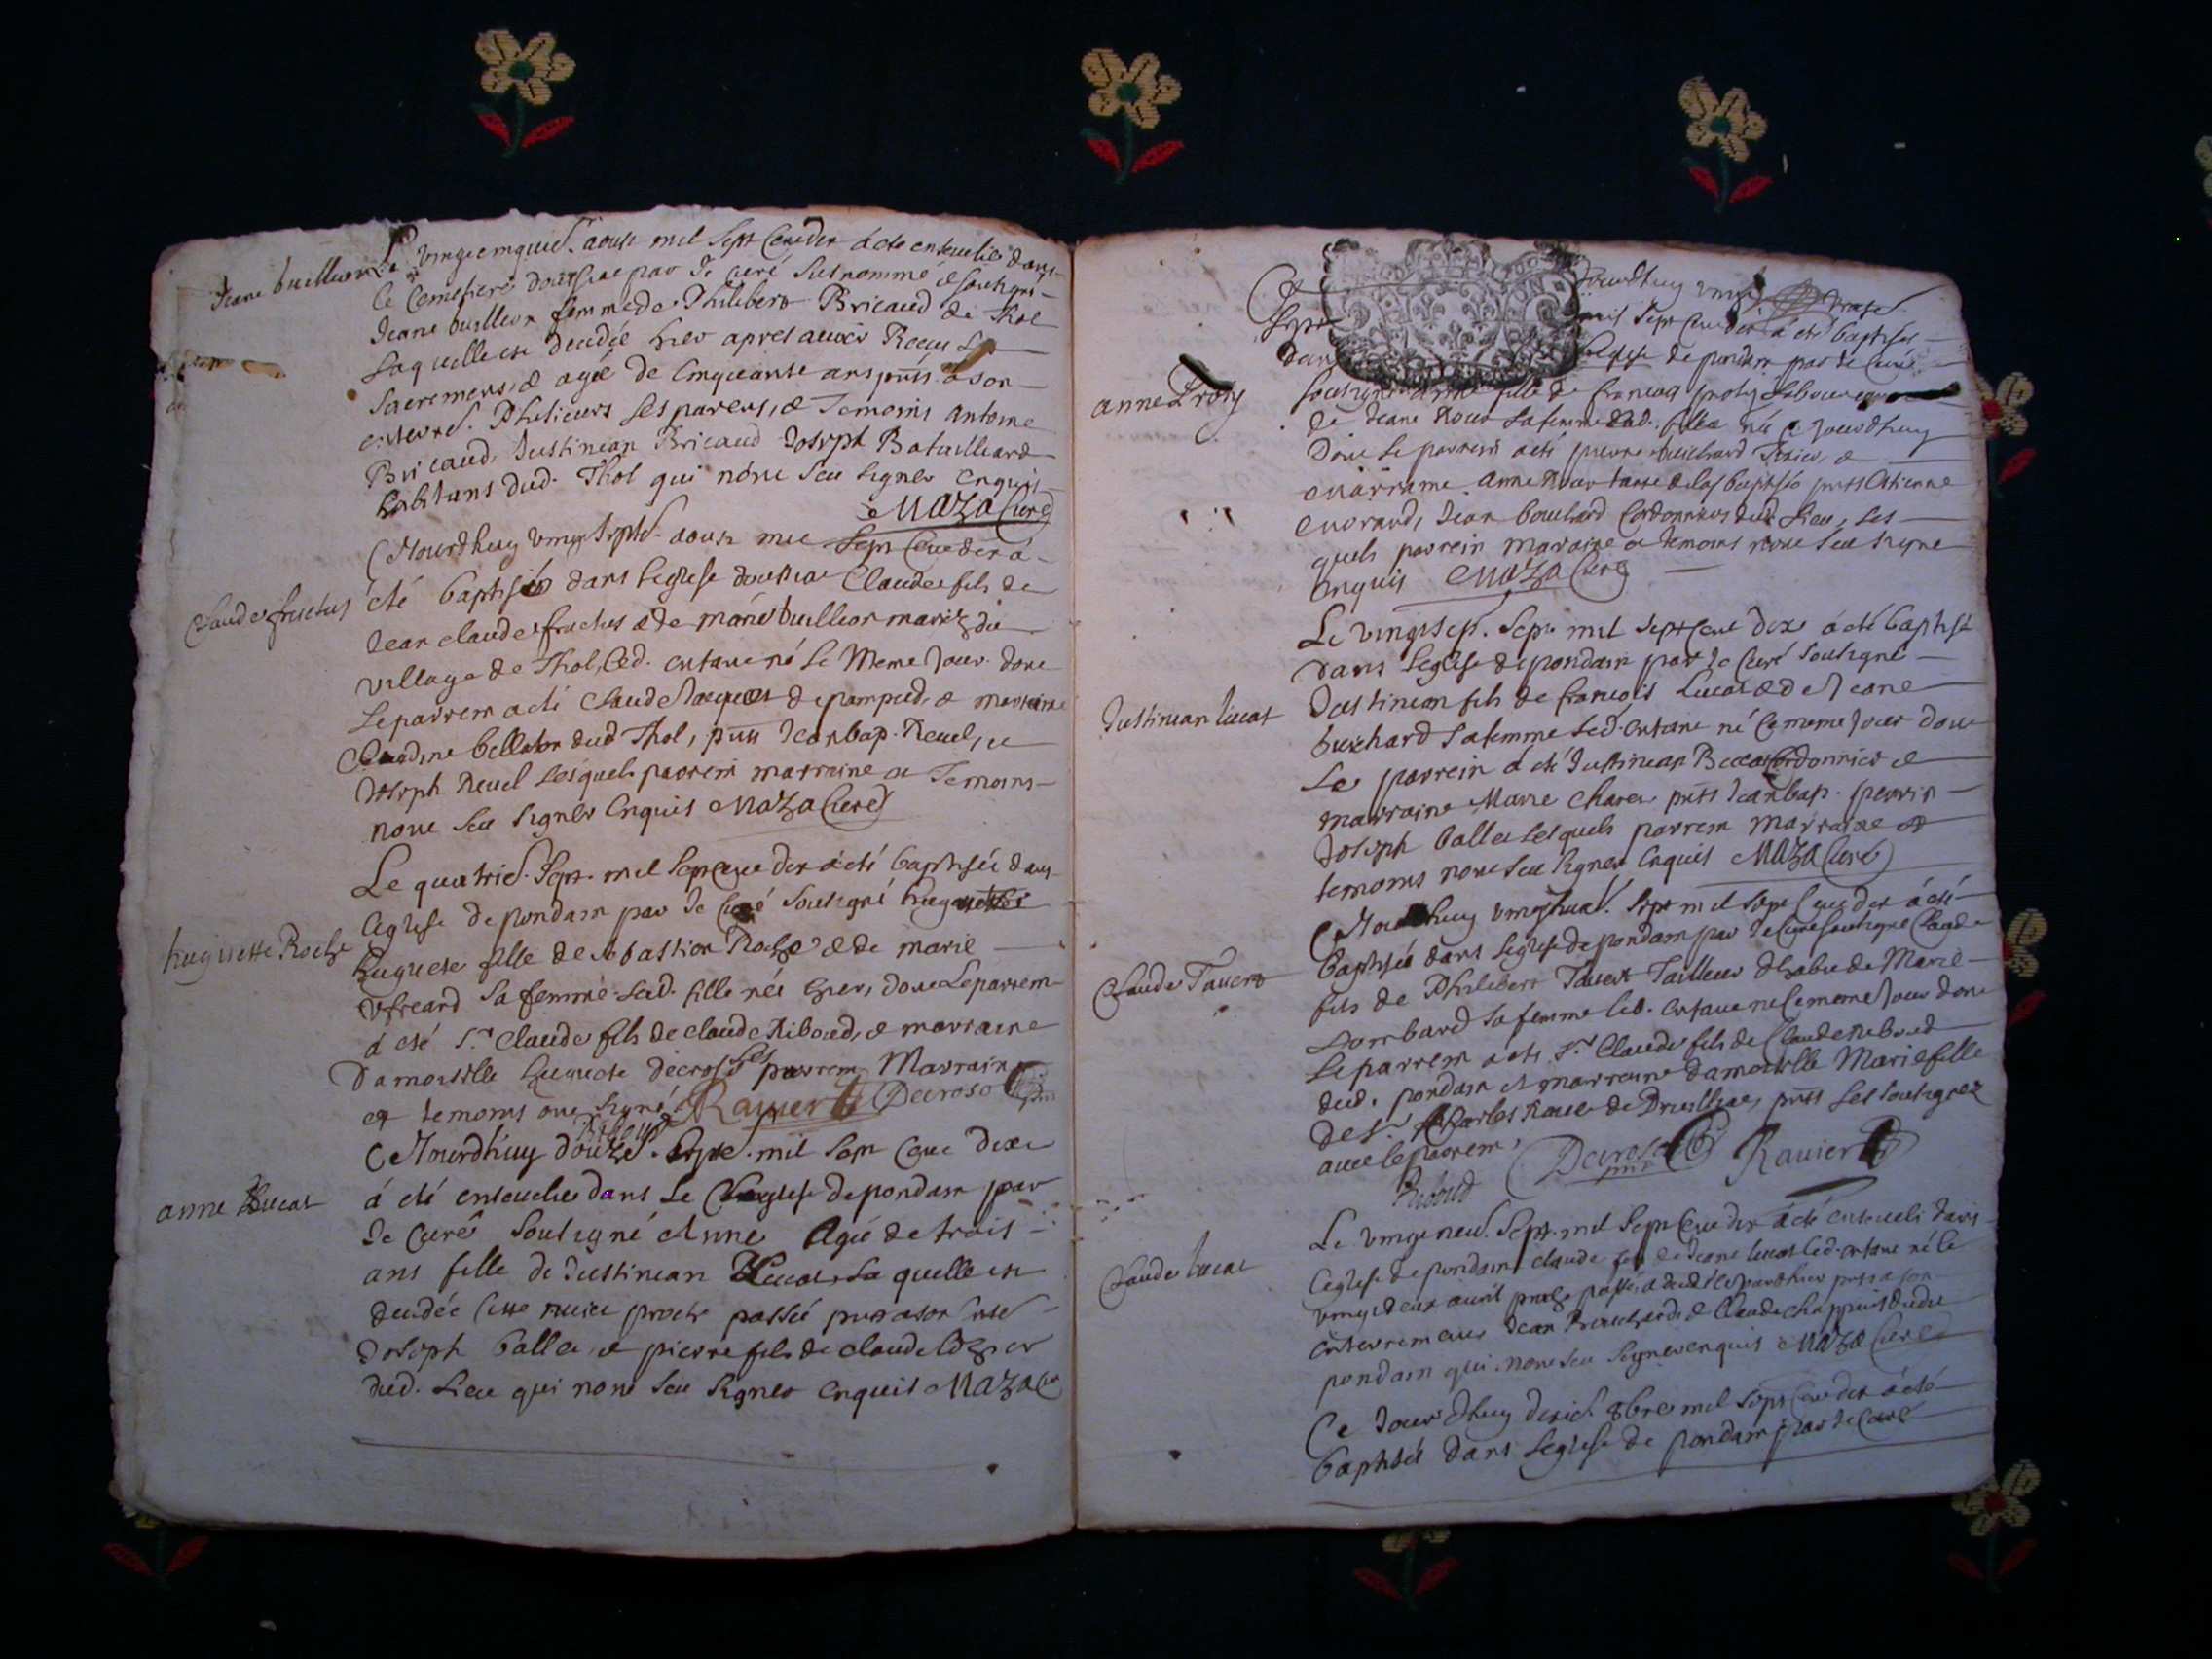 Jeane buillion
Le vingt cinquies. aoust mil sept cent dix a ete enseuelie dans
le cemetiere par Je curé susnommé et soubsigné
Jeane buillion femme de Philibert Bricaud de Thol
Laquelle est decedée hier apres auoir Receu Les
sacremens, & agée de Cinquante ans pnts. a son
enterre. Plusieurs ses parens, & Temoins antoine
Bricaud, Justinian Bricaud Joseph Bataillard
habitans dud. Thol qui n'ont sceu signer enquis
Maza Curé
Claude fructus
Cejourdhuy vingt septies. aoust mil sept cent dix a
été baptisé dans leglise Claude fils de
Jean claude fructus & de marie buillion mariez du
village de Thol, Led. enfant né le meme Jour dont
Le parrein a eté Claude Jacques de & marraine
Claudine bellaton dud Thol, pnts Jean bap. Reuel, et
Joseph Reuel Lesquels parrein marraine et Temoins
nont sceu signer enquis Maza Curé
huguette Roche
Le quatries. Sept. mil sept cent dix a eté baptisée dans
leglise de pondain par Je Curé soussigné
huguete fille de sebastien Roche & de marie
sa femme Lad. fille née hyer, dont Le parrein
a eté Sr. Claude fils de claude Riboud, & marraine
Damoiselle huguete decrose Les parrein Marraine
et temoins ont signé. Rauier Decroso
Riboud
anne Lucat
Cejourdhuy douzies. Sept. mil sept cent dix
a eté enseuelie dans Leglise de pondain par
Je Curé soussigné Anne Agée de trois
ans fille de Justinian Lucat La quelle est
decedée cette nuict proche passée pnts a son
Joseph ballet, et pierre fils de claude
dud. Lieu qui nont sceu signer enquis Maza Curé
anne Proty
Cejourdhuy vingt
Sept mil sept cent dix a eté baptisée
dans leglise de pondain par Je Curé
soussigné anne fille de francois proty Laboureur
de Jeane Roux sa femme Lad. fillie née cejourdhuy
Dont le parrein a eté pierre &
marraine anne Roux tante de la baptisée pnts Estienne
morand, Jean bouchard Cordonniers dud Lieu, Les
quels parrein maraine et temoins nont sceu signe
enquis Maza Curé
Justinian lucat
Le vingt sep. Sept. mil sept cent dix a eté baptisé
dans Leglise de pondain par Je Curé soussigné
Justinian fils de francois Lucat & de Jeane
buichard sa femme Led. enfant né ce meme Jour dont
Le parrein a eté Justinian Cordonnier &
marraine Marie pnts Jean bap. perrin
Joseph ballet Lesquels parrein marraine et
temoins nont sceu signer enquis Maza Curé
Claude Tauert
Cejourdhuy Sept mil sept cent dix a eté
baptisé dans leglise de pondain par Je Curé soussigné Claude
fils de Philibert Tauert Tailleur dhabit de Marie
Lombard sa femme Led. enfant né ce meme Jour dont
Le parrein a eté Sr. Claude fils de Claude Riboud
dud. pondain et marraine damoiselle Marie fille
de Sr. Charles de Druillat, pnts Les soussignez
auec le parrein,
Riboud Decroso Rauier
Claude lucat
Le vingt neuf. Sept. mil sept cent dix a eté enseueli dans
leglise de pondain claude fils de Jeane lucat Led. enfant né le
vingt deux auril proche passé, a decedé pnts a son
enterrement Jean & Claude Chappuis dudit
pondain qui nont sceu signer enquis Maza Curé
Ce Jour dhuy 8bre mil sept cent dix a eté
baptisée dans Leglise de pondain par Je Curé